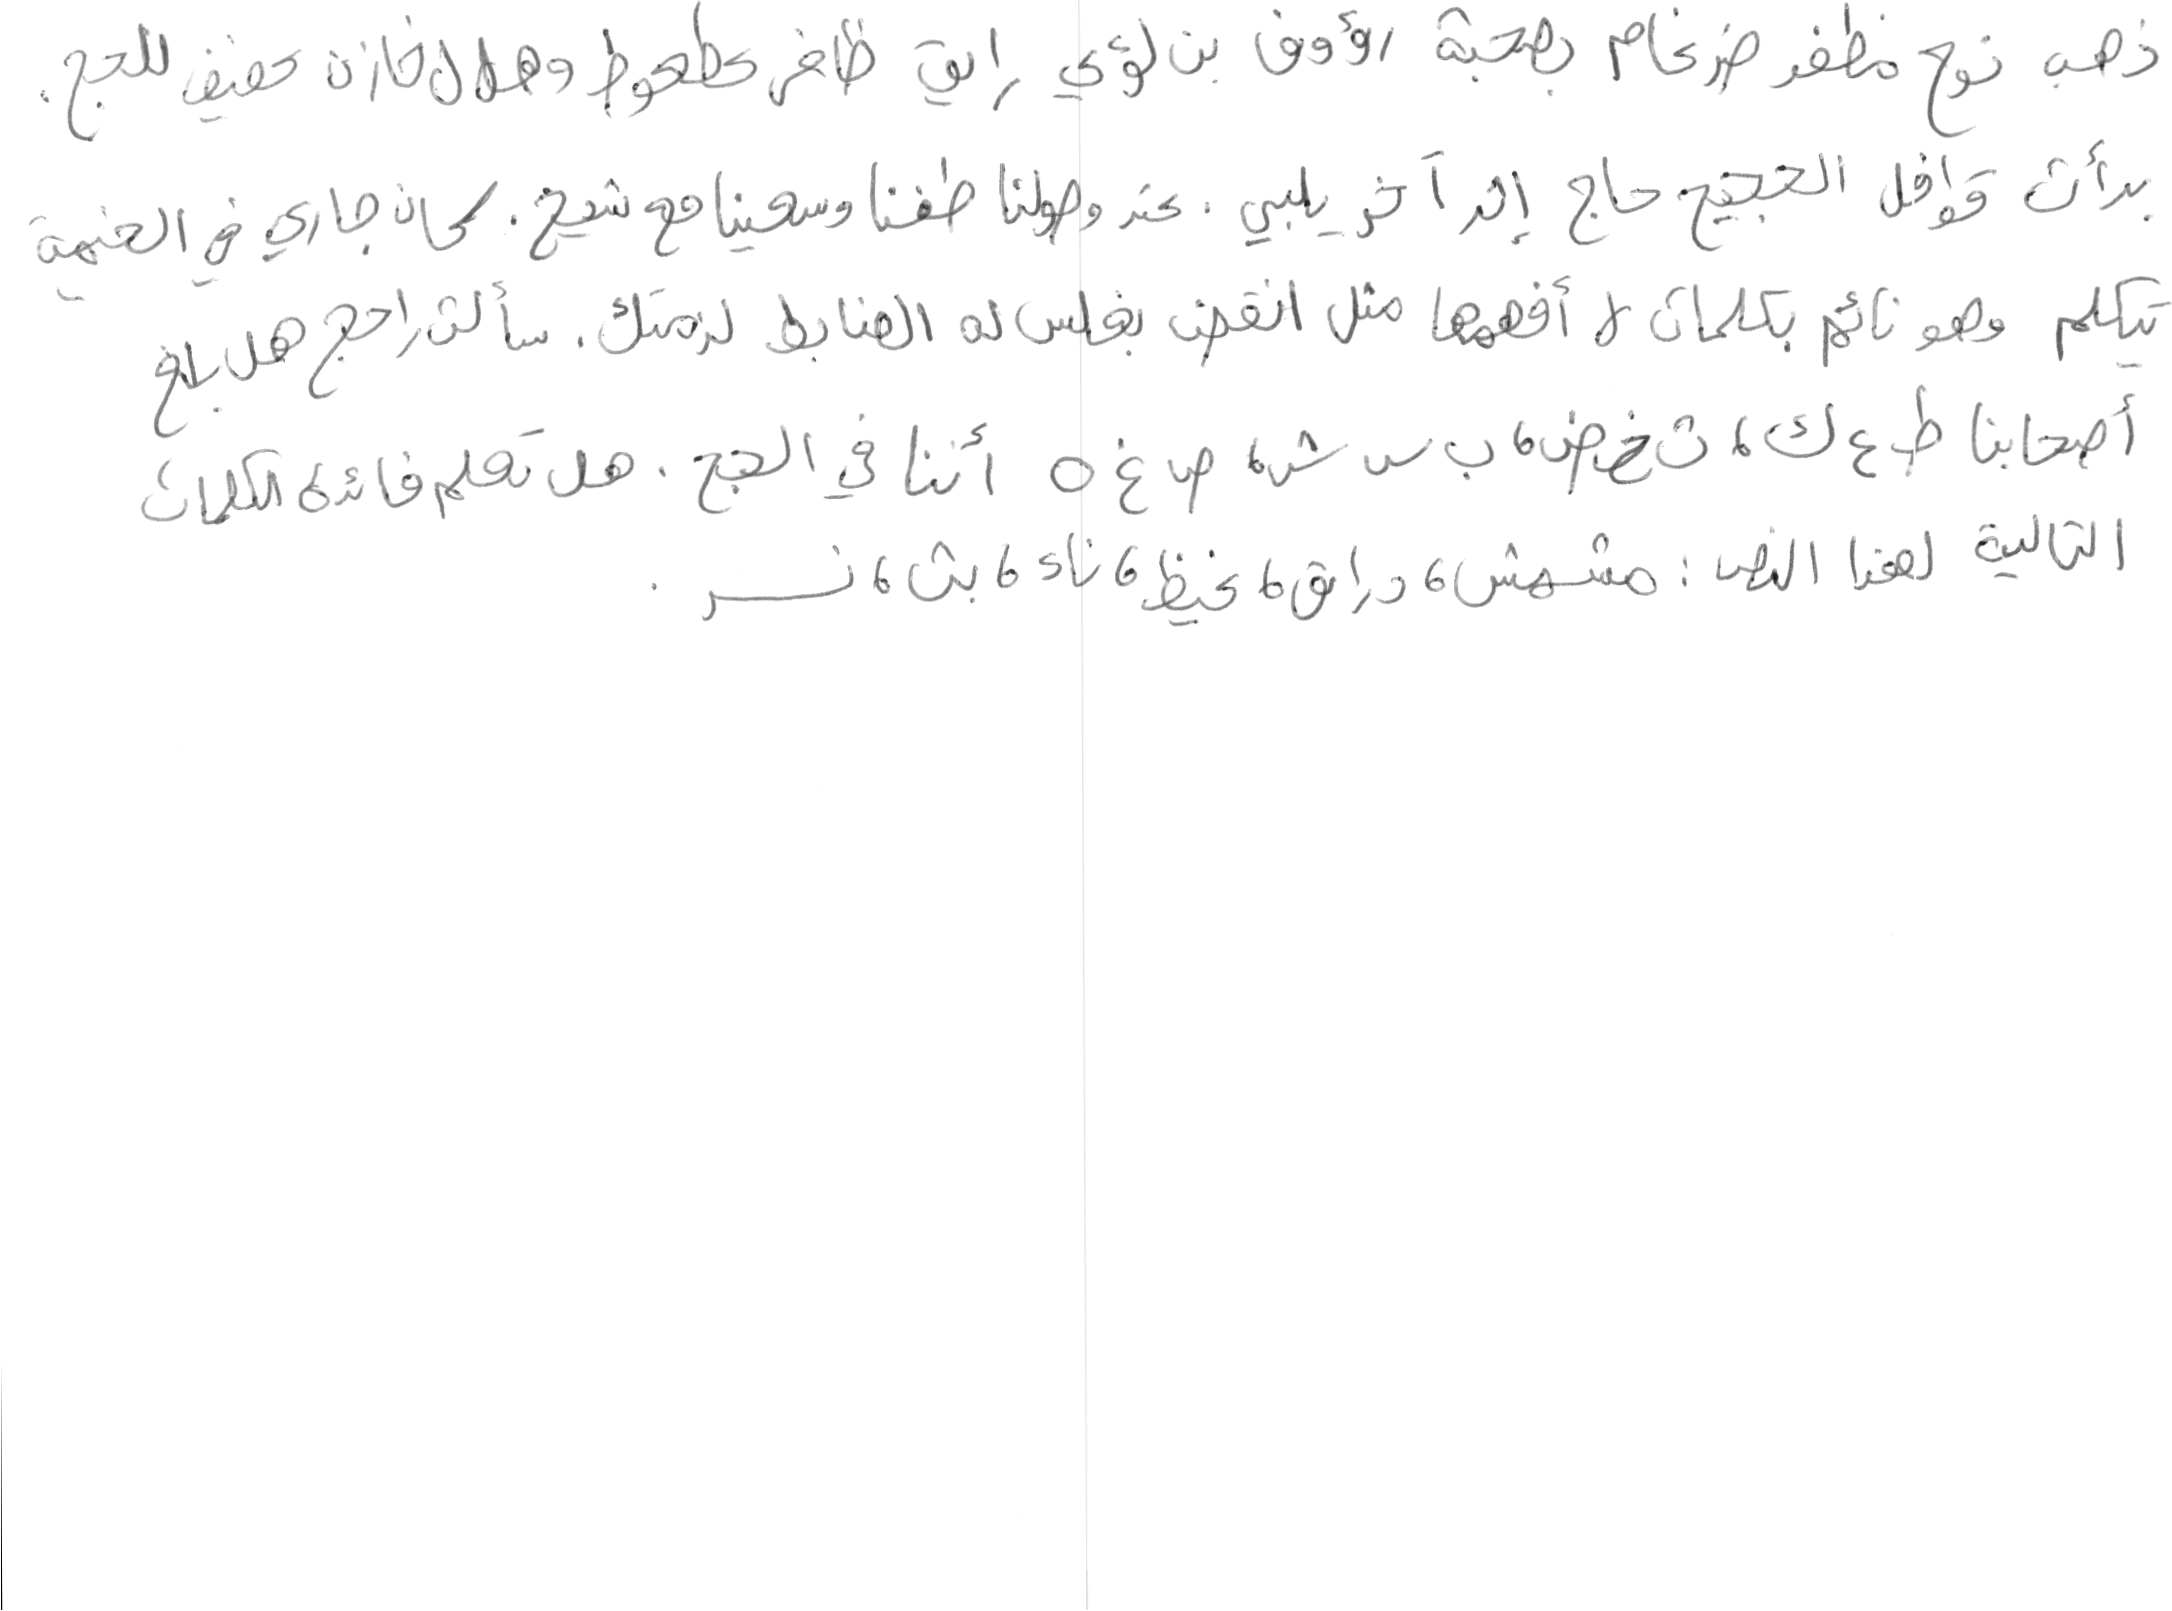 ذهب نوح مظفر ضرغام بصحبة رؤوف بن لؤي رايق ظافر عطعوط وهلال خازن عفيف للحج.
بدأت قوافل الحجيج حاج إثر آخر يلبي. عند وصولنا طفنا وسعينا مع شيخ. كان جاري في الخيمة
يتكلم وهو نائم بكلمات لا أفهمها مثل انقض بغلس له الضابط لزمتك. سألت راجح هل بلغ
أصحابنا ط ع ك، ث خ ض، ب س ش، ص غ ه أننا في الحج. هل تعلم فائدة الكلمات
التالية لهذا النص: مشمش، درابق، غيظ، ناء، بث، نسر.